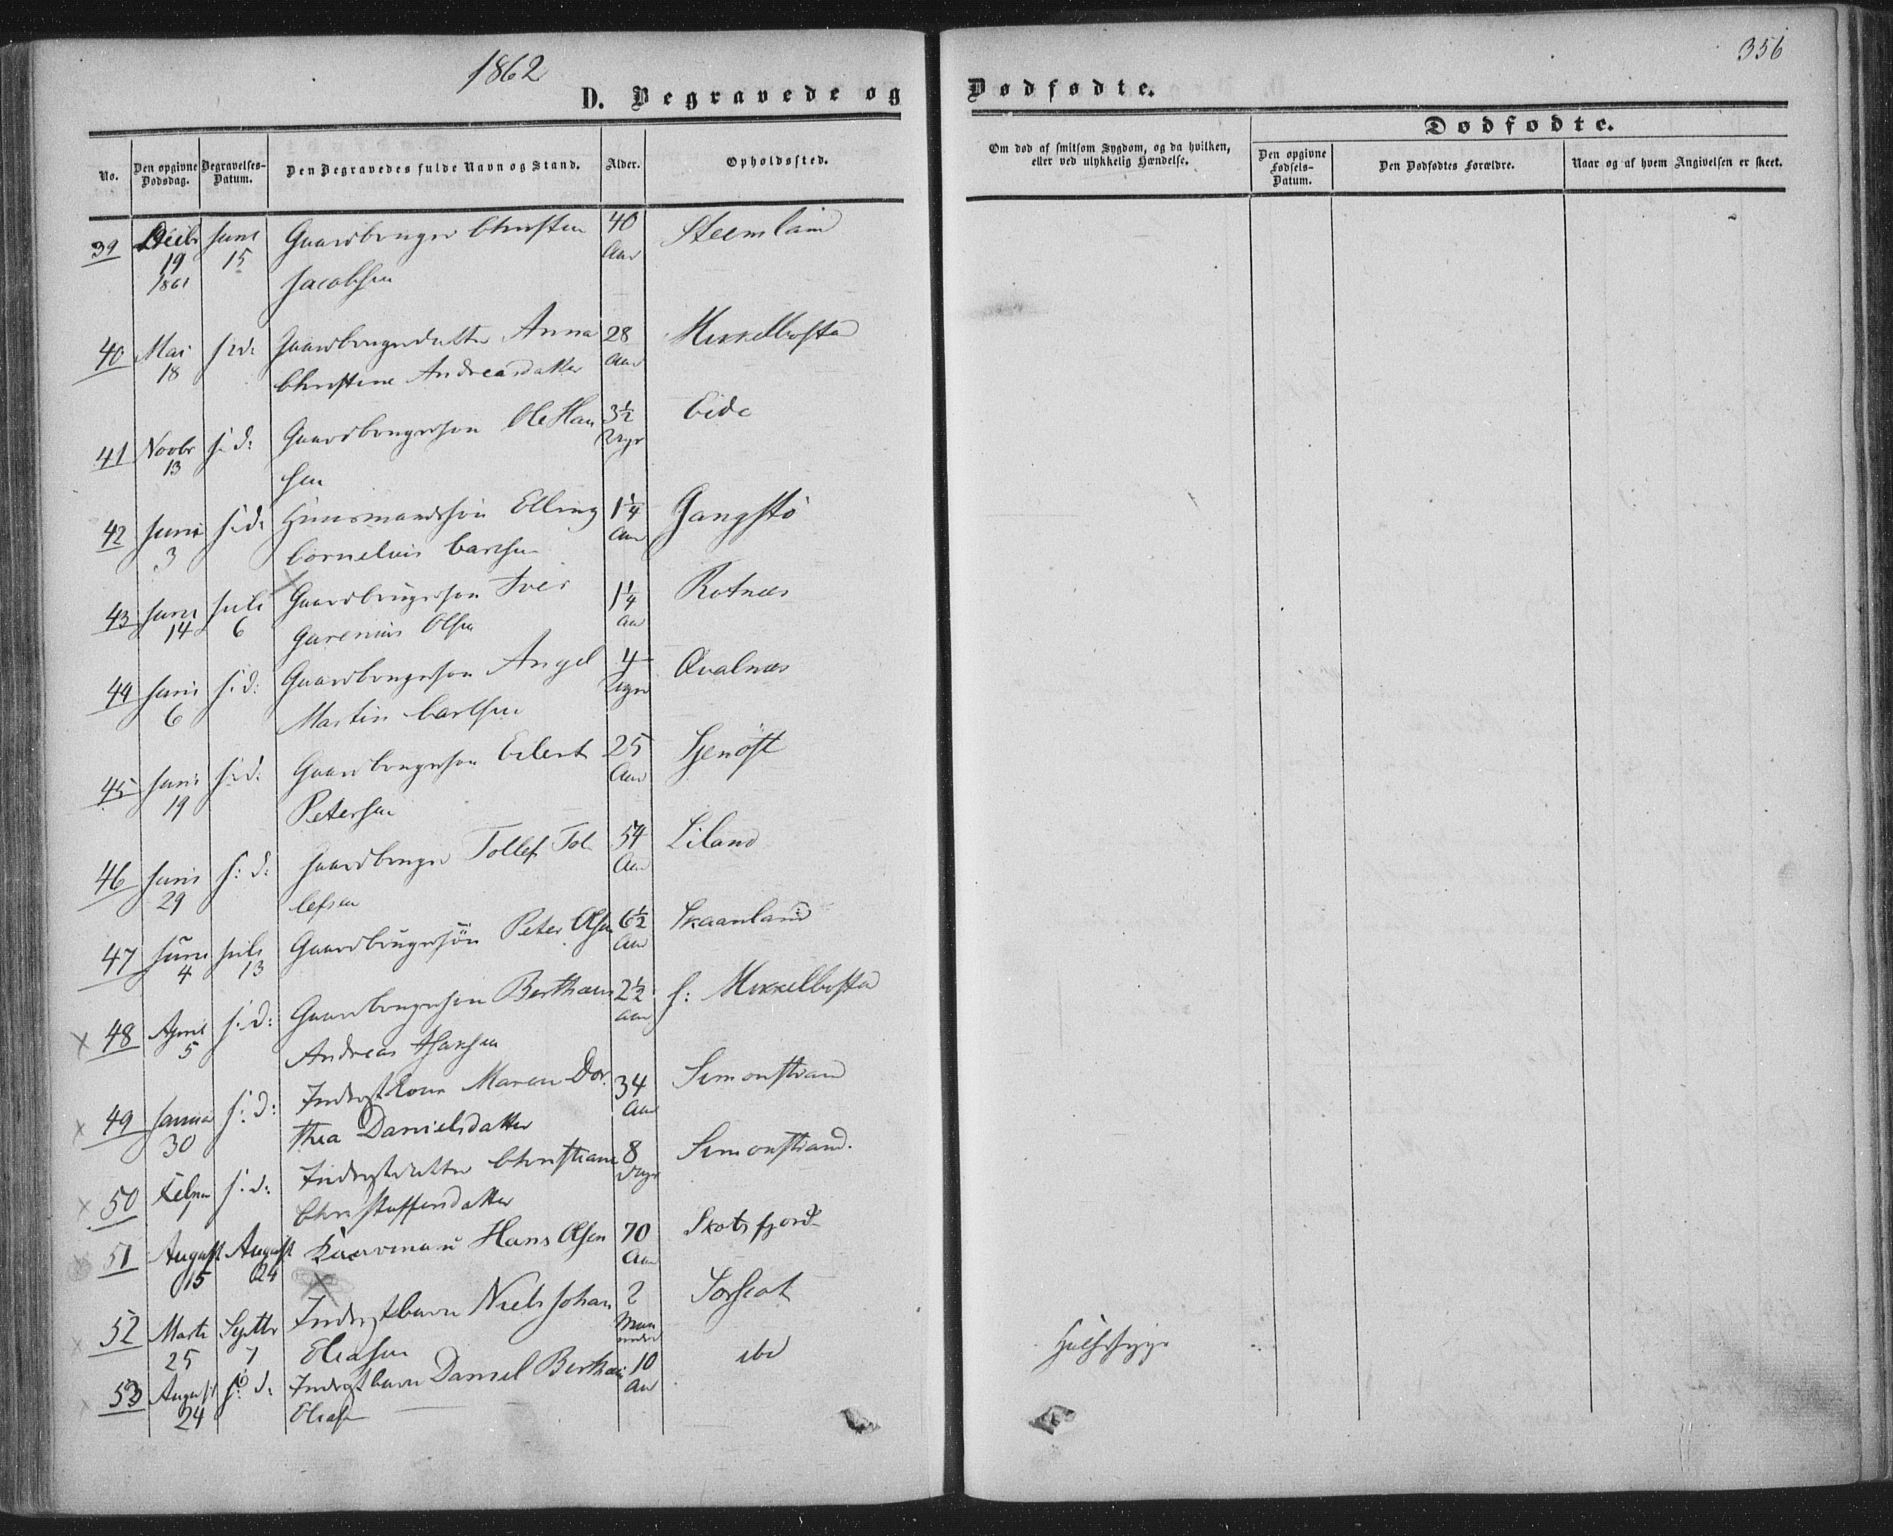 1862
356
D. Begravede og Dødfødte.
No.
Den opgivne Dødsdag.
Begravelses-Datum.
Den Begravedes fulde Navn og Stand.
Alder.
Opholdssted.
Om død af smitsom Sygdom, og da hvilken, eller ved ulykkelig Hændelse.
Dødfødte.
Den opgivne Fødsels-Datum.
Den Dødfødtes Forældre.
Naar og af hvem Angivelsen er skeet.
39 Decbr 19 1861 Juni 15 Gaardbruger Christen Jacobsen 40 Aar
40 Mai 18 s: d: Gaardbrugerdatter Anna Christine Andreasdatter 28 Aar Mikkelbostad
41 Novbr 13 s: d: Gaardbrugersøn Ole Hansen 3½ Eide
42 Juni 3 s: d: Huusmandssøn Elling Cornelius Carlsen 1¼ Aar Gangstø
43 Juni 14 Juli 6 Gaardbrugersøn Iver Gurenius Olsen 1¼ Aar Rotnæs
44 Juni 6 s: d: Gaardbrugersøn Angel Martin Carlsen 4 Uger Qvalnæs
45 Juni 19 s: d: Gaardbrugersøn Eilert Petersen 25 Aar
46 Juni 29 s: d: Gaardbruger Tollef Tollefsen 54 Aar Liland
47 Juni 4 Juli 13 Gaardbrugersøn Peter Olsen 6½ Aar Skaanland
48 April 5 s: d: Gaardbrugersøn Berthæus Andreas Hansen 2½ Aar Mikkelbostad
49 Janua 30 s: d: Inderstkone Maren Dorthea Danielsdatter 34 Aar Simonstrand
50 s: d: Inderstdatter Christiane Christoffersdatter 8 Dage Simonstrand.
51 August 15 August 24 Hans Olsen 70 Aar Skotsfjord
52 Marts 25 Septbr 7 Inderstbarn Niels Johan Eliasen 2 Maaneder
53 August 24 s: d: Inderstbarn Daniel Eliasen 10 Aar ibd Halssyge